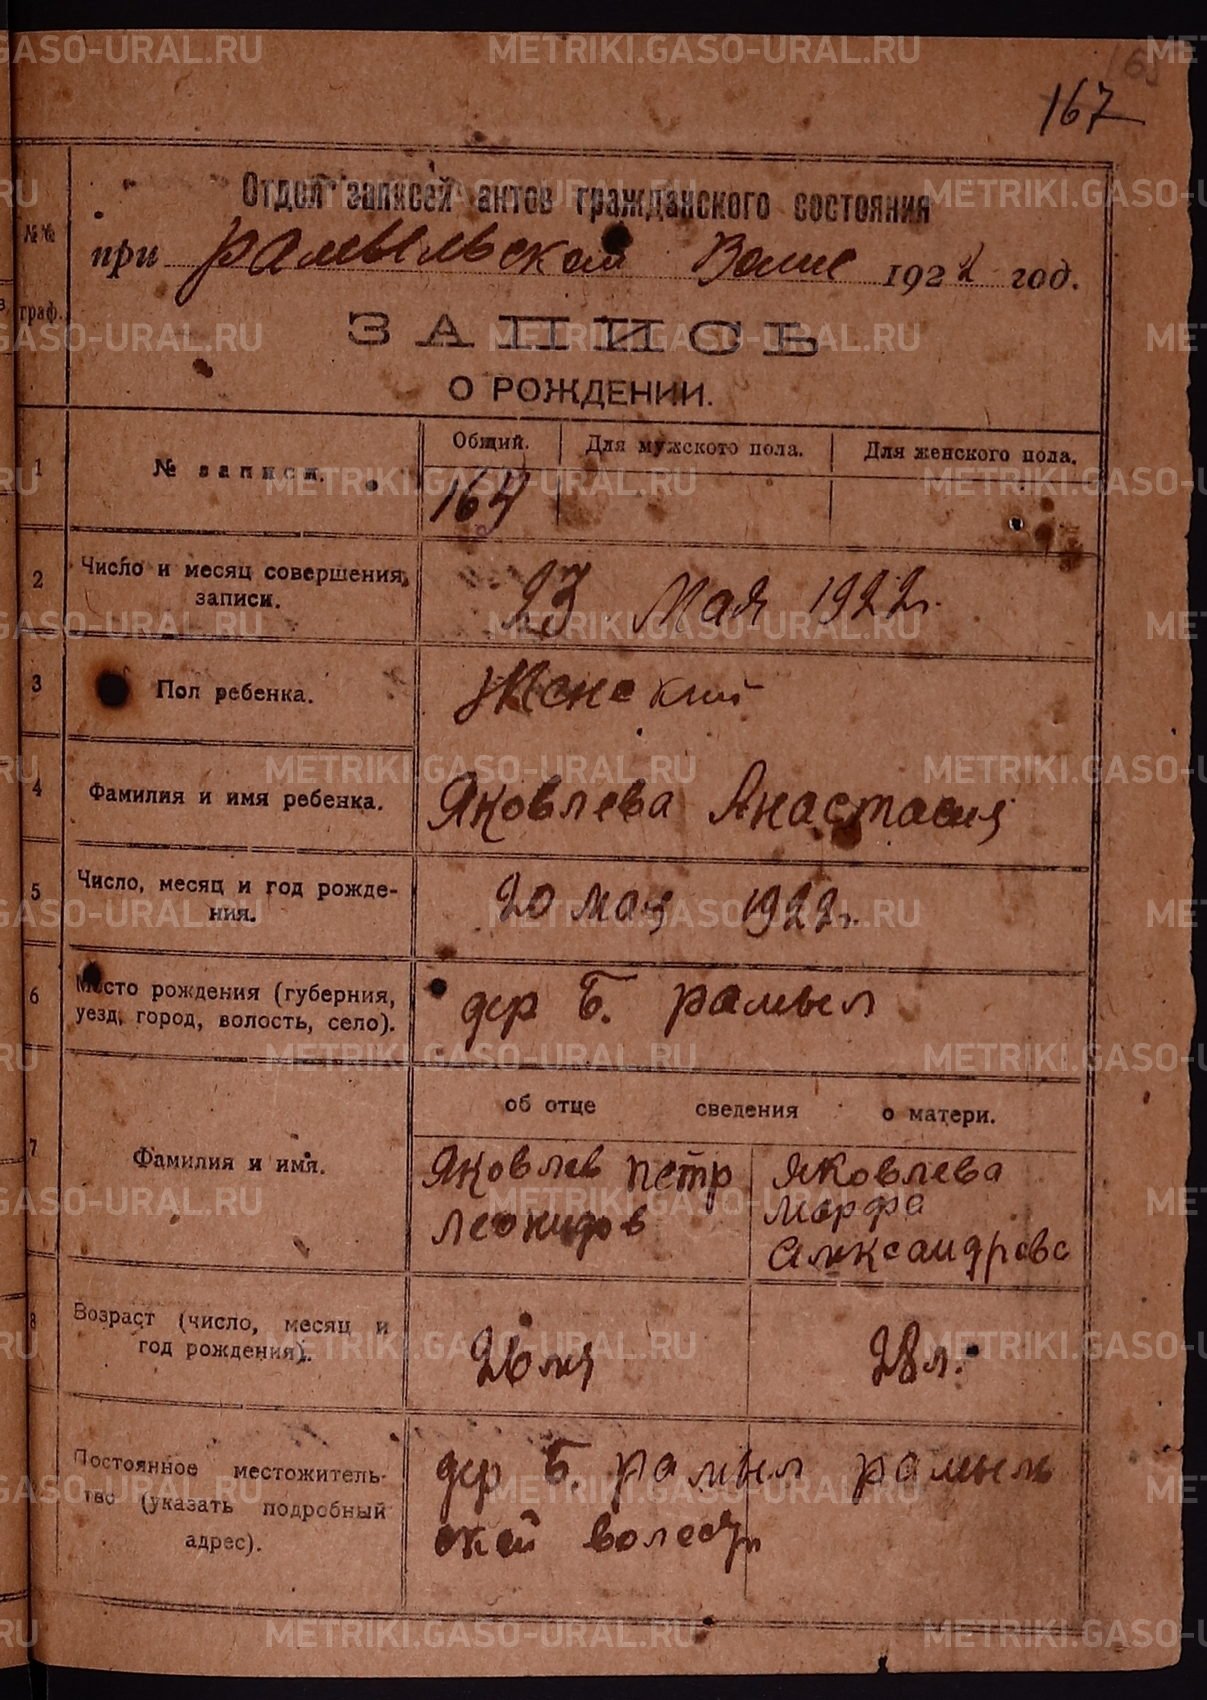 167
Отдел записей актов гражданского состояния
при Рамыльской Волис 1922 год.
№№ граф.
ЗАПИСЬ
О РОЖДЕНИИ.
1 № записи. Общий. Для мужского пола. Для женского пола.
164
2 Число и месяц совершения записи. 23 Мая 1922 г.
3 Пол ребенка. Женский
4 Фамилия и имя ребенка. Яковлева Анастасия
5 Число, месяц и год рожде-
ния. 20 мая 1922 г.
6 Место рождения (губерния,
уезд, город, волость, село). дер Б. рамыл
об отце сведения о матери.
7 Фамилия и имя. Яковлев петр
леонидов
Яковлева
Марфа
Александрова
8 Возраст (число, месяц и
год рождения). 26 28 л.
Постоянное местожитель-
тво (указать подробный
адрес). дер Б рамыл рамыль
ской волости
METRIKI.GASO-URAL.RU